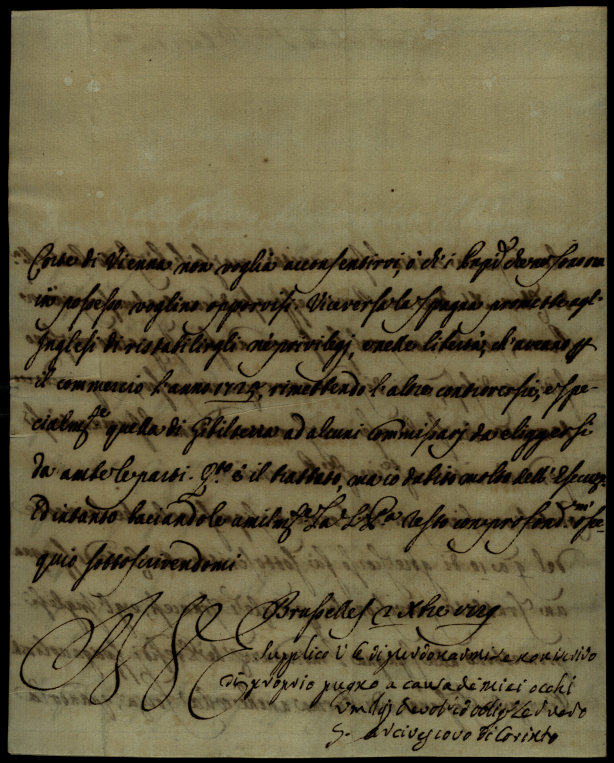 Corte di Vienna non voglia acconsentirvi, ò ch'i
in possesso voglino opporvisi. Viceversa la Spagna promette agl'
Inglesi di ristabilirgli ne privilegj, e nelle libertà, ch'aveano
il commercio l'anno 1725, rimettendo l'altre controversie, e spe-
cialmte quella di Gibilterra ad alcuni Commissarj da eliggersi
da ambe le parti. Qto è il trattato, ma io dubito molto dell'
Ed intanto baciandole umilmte resto con profondmo osse-
quio sottoscrivendomi
Brusselles 2 Xbre 1729
Supplico V. E. di perdonarmi se non scrivo
di proprio pugno a causa de miei occhi
Devotmo ed obligmo
Arcivescovo di Corinto